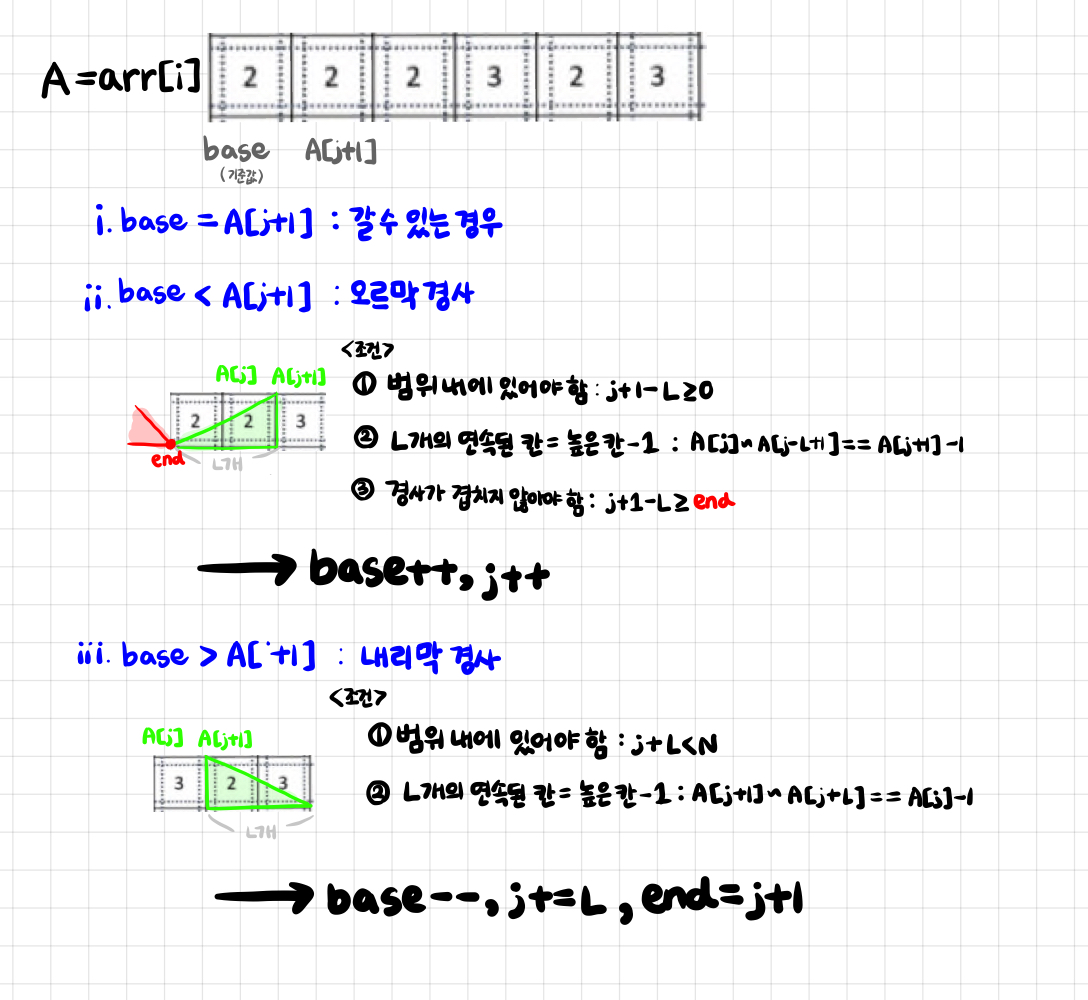 A=arr[i] 2 2 2 3 2 3
base A[j+1]
(기준값)
i. base = A[j+1] : 갈 수 있는 경우
ii. base < A[j+1] : 오르막 경사
<조건>
A[j] A[j+1]
① 범위 내에 있어야 함 : j+1-L≥0
2 2 3
② L개의 연속된 칸 = 높은 칸-1 : A[j]~A[j-L+1] == A[j+1]-1
end L개
③ 경사가 겹치지 않아야 함 : j+1-L≥end
→ base++, j++
iii. base > A[ +1] : 내리막 경사
<조건>
A[j] A[j+1]
① 범위 내에 있어야 함 : j+L<N
3 2 3
② L개의 연속된 칸 = 높은 칸-1 : A[j+1]~A[j+L] == A[j]-1
L개
→ base--, j+=L, end=j+1